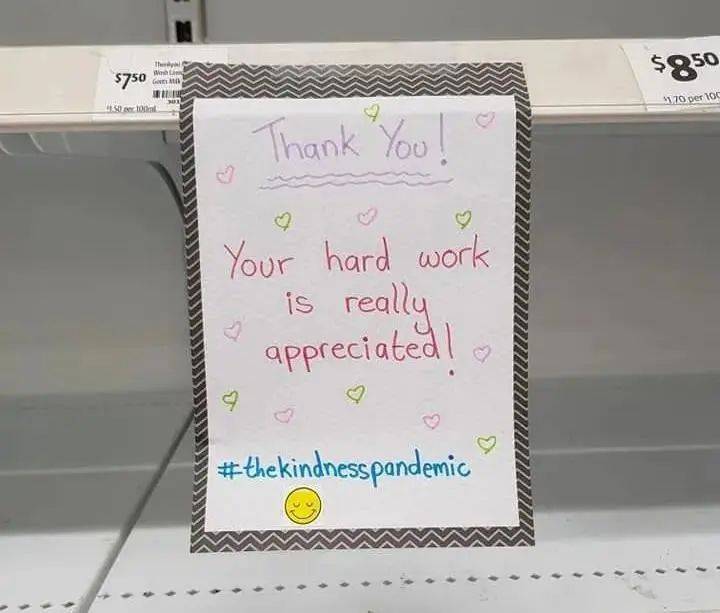 $7.50
Thankyou
Goats Milk
$1.50 per 100ml
$8.50
$1.70 per 100
Thank You!
Your hard work
is really
appreciated!
#thekindnesspandemic